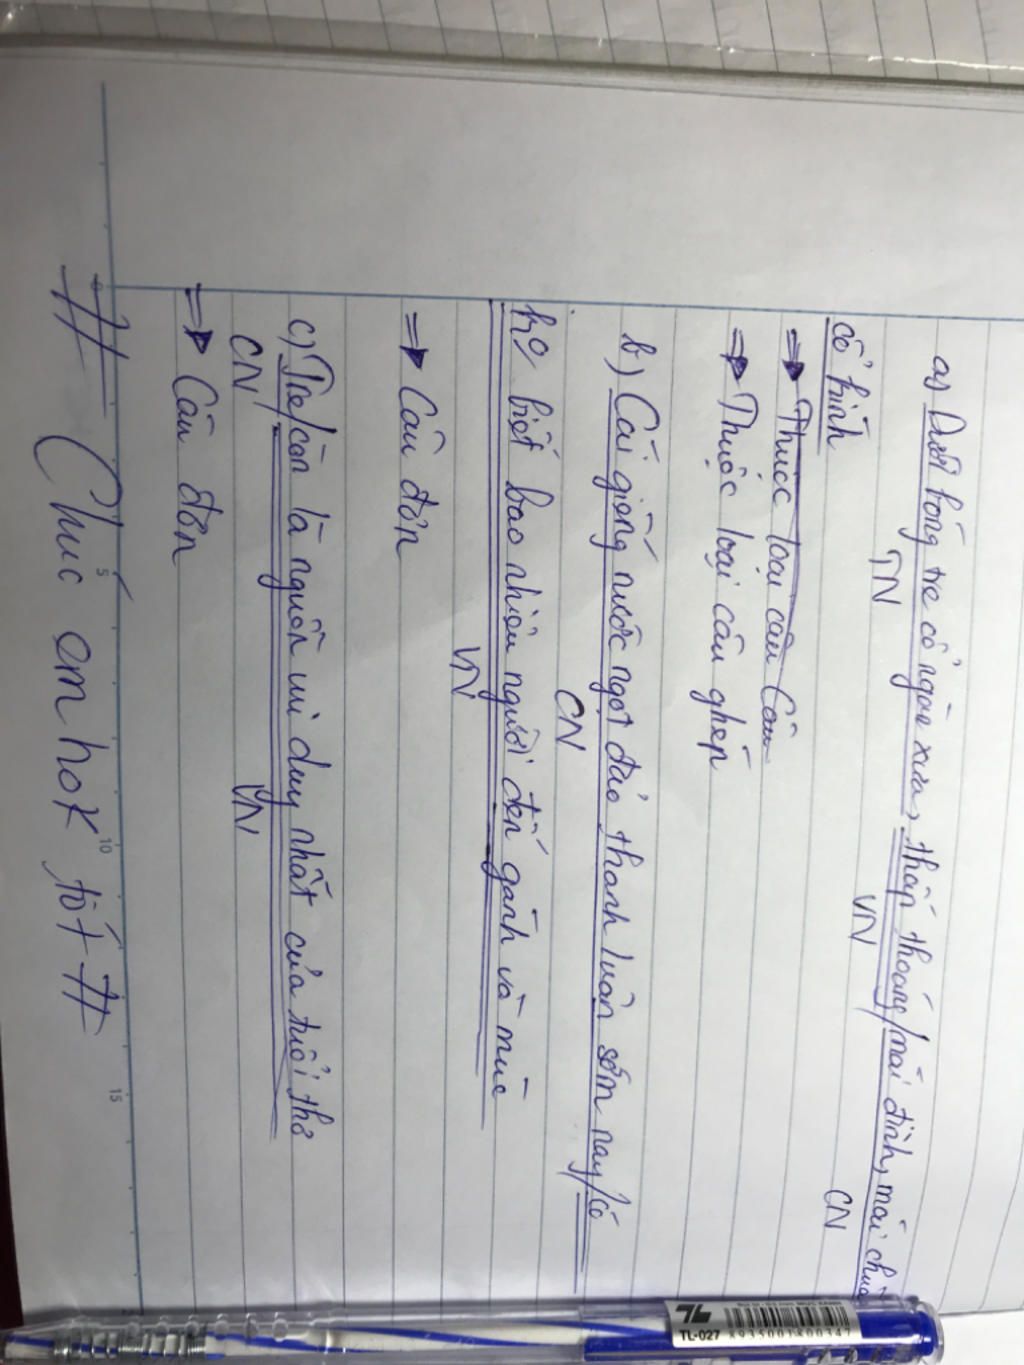 a) Dưới bóng tre cổ ngàn xưa, thấp thoáng/mái đình, mái chùa
TN VN CN
cổ kính
⇒ Thuộc loại câu Câu
⇒ Thuộc loại câu ghép
b) Cái giếng nước ngọt đảo thanh luân sớm nay/có
CN
ko biết bao nhiêu người đến gánh và múc
VN
⇒ Câu đơn
c) Tre/còn là nguồn vui duy nhất của tuổi thơ
CN VN
⇒ Câu đơn
# Chúc em hok tốt #
5
10
15
TL
TL-027
8935001800347